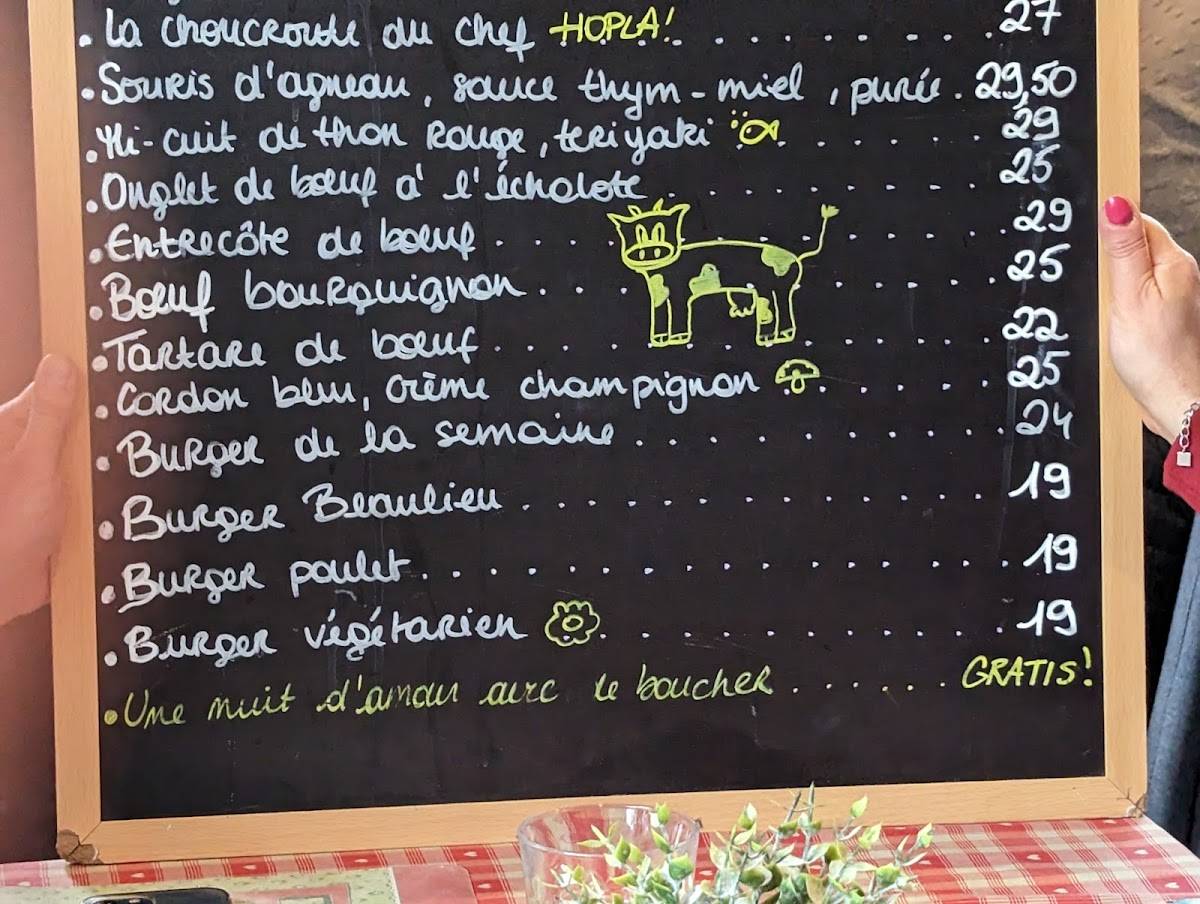 . La choucroute du chef HOPLA! . . . . . . . . . . . 27
. Souris d'agneau, sauce thym-miel, purée . 29,50
. Mi-cuit de thon rouge, teriyaki . . . . . . . 29
. Onglet de bœuf à l'échalote . . . . . . . . . . 25
. Entrecôte de bœuf . . . . . . . . . . . . . . 29
. Bœuf bourguignon . . . . . . . . . . . . 25
. Tartare de bœuf . . . . . . . . . . . . . . . 22
. Cordon bleu, crème champignon . . . . . . . 25
. Burger de la semaine . . . . . . . . . . . . 24
. Burger Beaulieu . . . . . . . . . . . . . . . 19
. Burger poulet . . . . . . . . . . . . . . . . . 19
. Burger végétarien . . . . . . . . . . . . . 19
. Une nuit d'amour avec le boucher . . . . . . GRATIS!